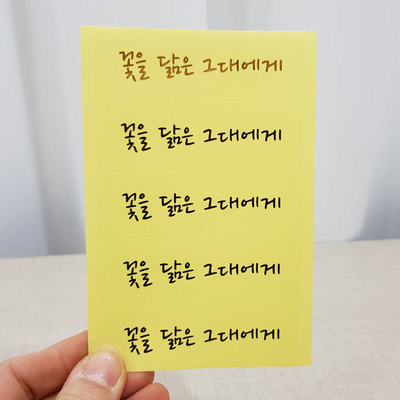 꽃을 닮은 그대에게
꽃을 닮은 그대에게
꽃을 닮은 그대에게
꽃을 닮은 그대에게
꽃을 닮은 그대에게